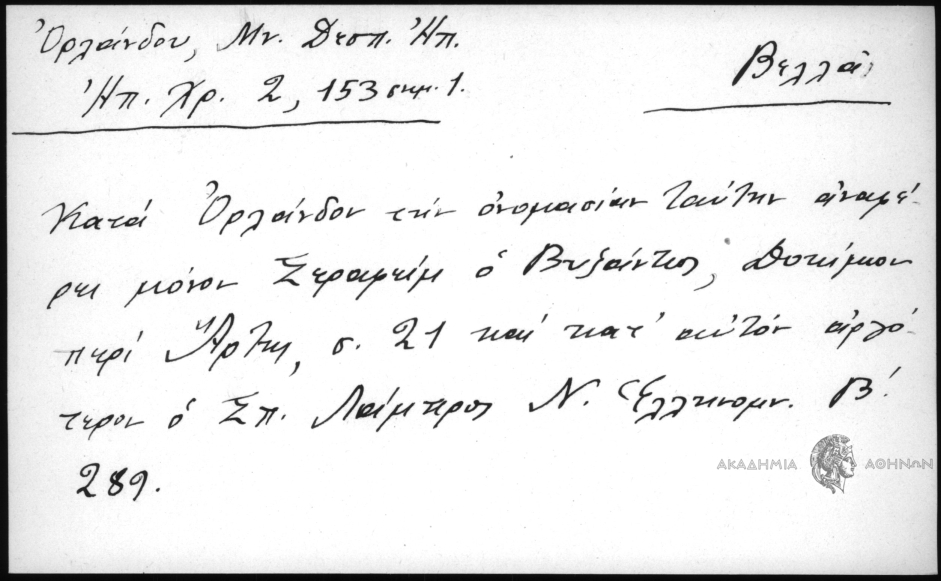 Ὀρλάνδου, Μν. Δεσπ. Ἠπ.
Ἠπ. Χρ. 2, 153 σημ. 1.
Βελλᾶ
Κατά Ὀρλάνδον τήν ὀνομασίαν ταύτην ἀναφέ-
ρει μόνον Σεραφείμ ὁ Βυζάντιος, Δοκίμιον
περί Ἄρτης, σ. 21 καί κατ' αὐτόν ἀργό-
τερον ὁ Σπ. Λάμπρος Ν. Ἑλληνομν. Β΄.
289.
ΑΚΑΔΗΜΙΑ ΑΘΗΝΩΝ